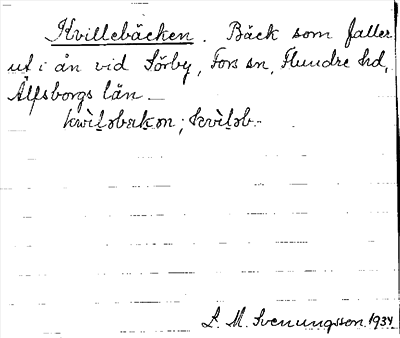 Kvillebäcken. Bäck som faller
ut i ån vid Sörby, Fors sn, Flundre hd,
Älfsborgs län –
kwìlɔbɛkɔn; kvìlɔb–
L. M. Svenungsson 1934